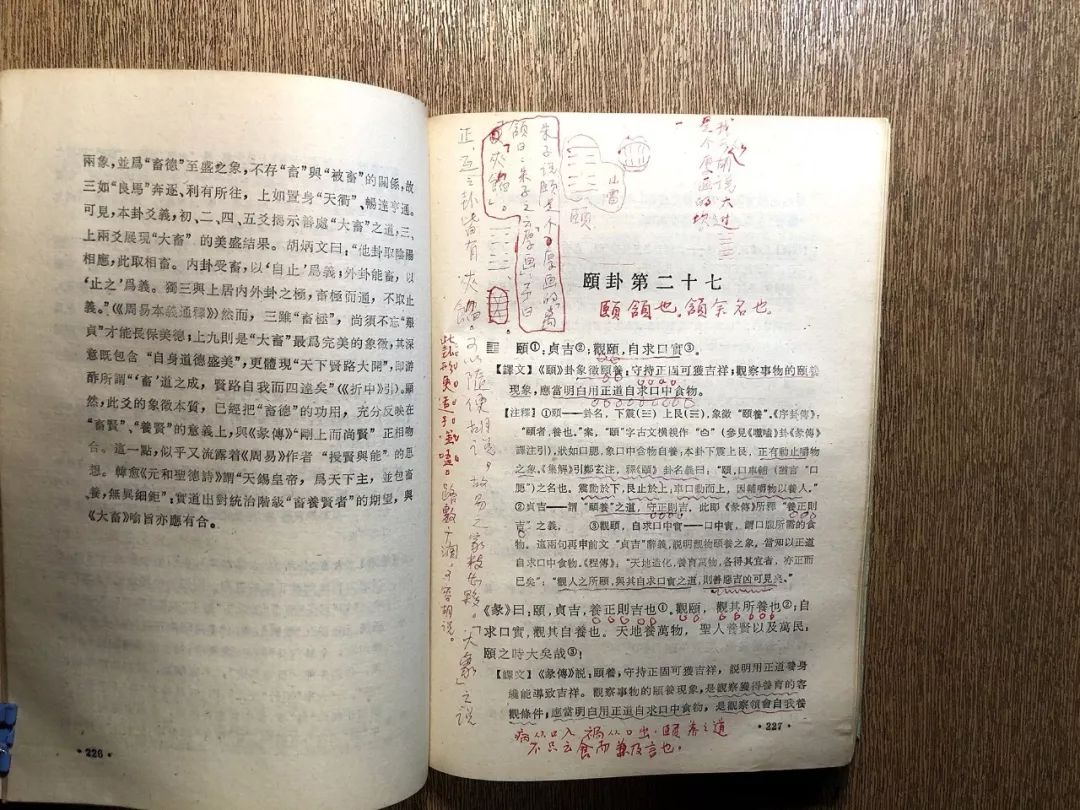 兩象，並爲“畜德”至盛之象，不存“畜”與“被畜”的關係，故
三如“良馬”奔逐、利有所往，上如置身“天衢”、暢達亨通。
可見，本卦爻義，初、二、四、五爻揭示善處“大畜”之道，三、
上兩爻展現“大畜”的美盛結果。胡炳文曰：“他卦取陰陽
相應，此取相畜。内卦受畜，以‘自止’爲義；外卦能畜，以
‘止之’爲義。獨三與上居内外卦之極，畜極而通，不取止
義。”（《周易本義通釋》）然而，三雖“畜極”，尚須不忘“艱
貞”才能長保美德；上九則是“大畜”最爲完美的象徵，其深
意既包含“自身道德盛美”，更體現“天下賢路大開”，即游
酢所謂“‘畜’道之成，賢路自我而四達矣”（《折中》引）。顯
然，此爻的象徵本質，已經把“畜德”的功用，充分反映在
“畜賢”、“養賢”的意義上，與《彖傳》“剛上而尚賢”正相吻
合。這一點，似乎又流露着《周易》作者“授賢與能”的思
想。韓愈《元和聖德詩》謂“天錫皇帝，爲天下主，並包畜
養，無異細鉅”：實道出對統治階級“畜養賢者”的期望，與
《大畜》喻旨亦應有合。
·226·
朱子说頤是个厚画的离
頷曰：朱子之云厚画，予曰
夾餡。
正互之卦皆有夾餡。
路數
不容胡说。
「大象」之说
山雷
頤
是个厚画的坎
頤卦第二十七
頤頷也。頷余名也。
䷚ 頤①：貞吉②；觀頤，自求口實③。
【譯文】《頤》卦象徵頤養：守持正固可獲吉祥；觀察事物的頤養
現象，應當明白用正道自求口中食物。
【注釋】①頤——卦名，下震（☳）上艮（☶），象徵“頤養”。《序卦傳》：
“頤者，養也。”案，“頤”字古文横視作“𦣝”（參見《噬嗑》卦《彖傳》
譯注引），狀如口腮，象口中含物自養；本卦下震上艮，正有動止嚼物
之象。《集解》引鄭玄注，釋《頤》卦名義曰：“頤，口車輔（猶言“口
腮”）之名也。震動於下，艮止於上，車口動而上，因輔嚼物以養人。”
②貞吉——謂“頤養”之道，守正則吉，此即《彖傳》所釋“養正則
吉”之義。 ③觀頤，自求口中實——口中實，謂口腹所需的食
物。這兩句再申前文“貞吉”辭義，説明觀物頤養之象，當知以正道
自求口中食物。《程傳》：“天地造化，養育萬物，各得其宜者，亦正而
已矣”；“觀人之所頤，與其自求口實之道，則善惡吉凶可見矣。”
《彖》曰：頤，貞吉，養正則吉也①。觀頤，觀其所養也②；自
求口實，觀其自養也。天地養萬物，聖人養賢以及萬民：
頤之時大矣哉③！
【譯文】《彖傳》説：頤養；守持正固可獲吉祥，説明用正道養身
纔能導致吉祥。觀察事物的頤養現象，是觀察獲得養育的客
觀條件；應當明白用正道自求口中食物，是觀察領會自我養
·227·
病从口入，禍从口出，頤養之道
不只云食而兼及言也。